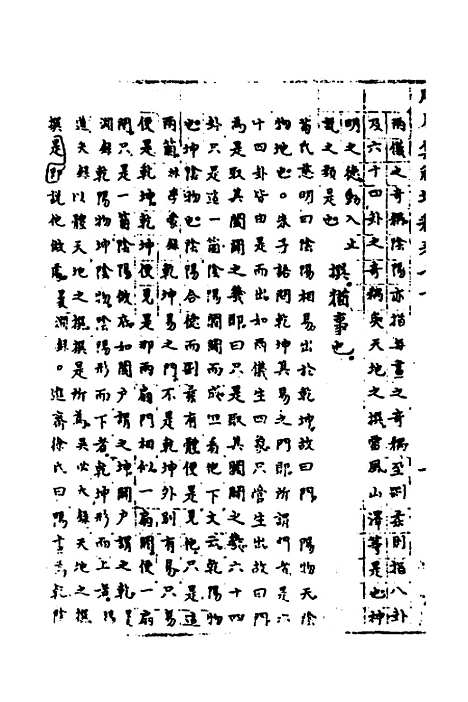 兩儀之奇耦陰陽亦指每畫之奇耦至剛柔則指八卦
及六十四卦之奇耦矣天地之撰雷風山澤等是也神
明之德動入止
說之類是也　撰猶事也
荀氏慈明曰陰陽相易出於乾坤故曰門　陽物天陰
物地也。朱子語問乾坤其易之門即所謂門者是六
十四卦皆由是而出如兩儀生四象只管生出故曰門
為是取其闔闢之義耶曰只是取其闔闢之義六十四
卦只是這一箇陰陽闔闢而成但看他下文云乾陽物
也坤陰物也陰陽合德而剛柔有體便見他只是這
兩箇　乾坤易之門不是乾坤外別有易只易
便是乾坤乾坤便是易是那兩扇門相似一扇開便一扇
閉只是一箇陰陽做底如闔戶謂之坤闢戶謂之乾
淵錄乾陽物坤陰物陰陽形而下者乾坤形而上者
道夫錄以體天地之撰撰是所為吳必大錄天地之撰
撰是即說他做處㬊淵錄。進齋徐氏曰陽畫為乾陰